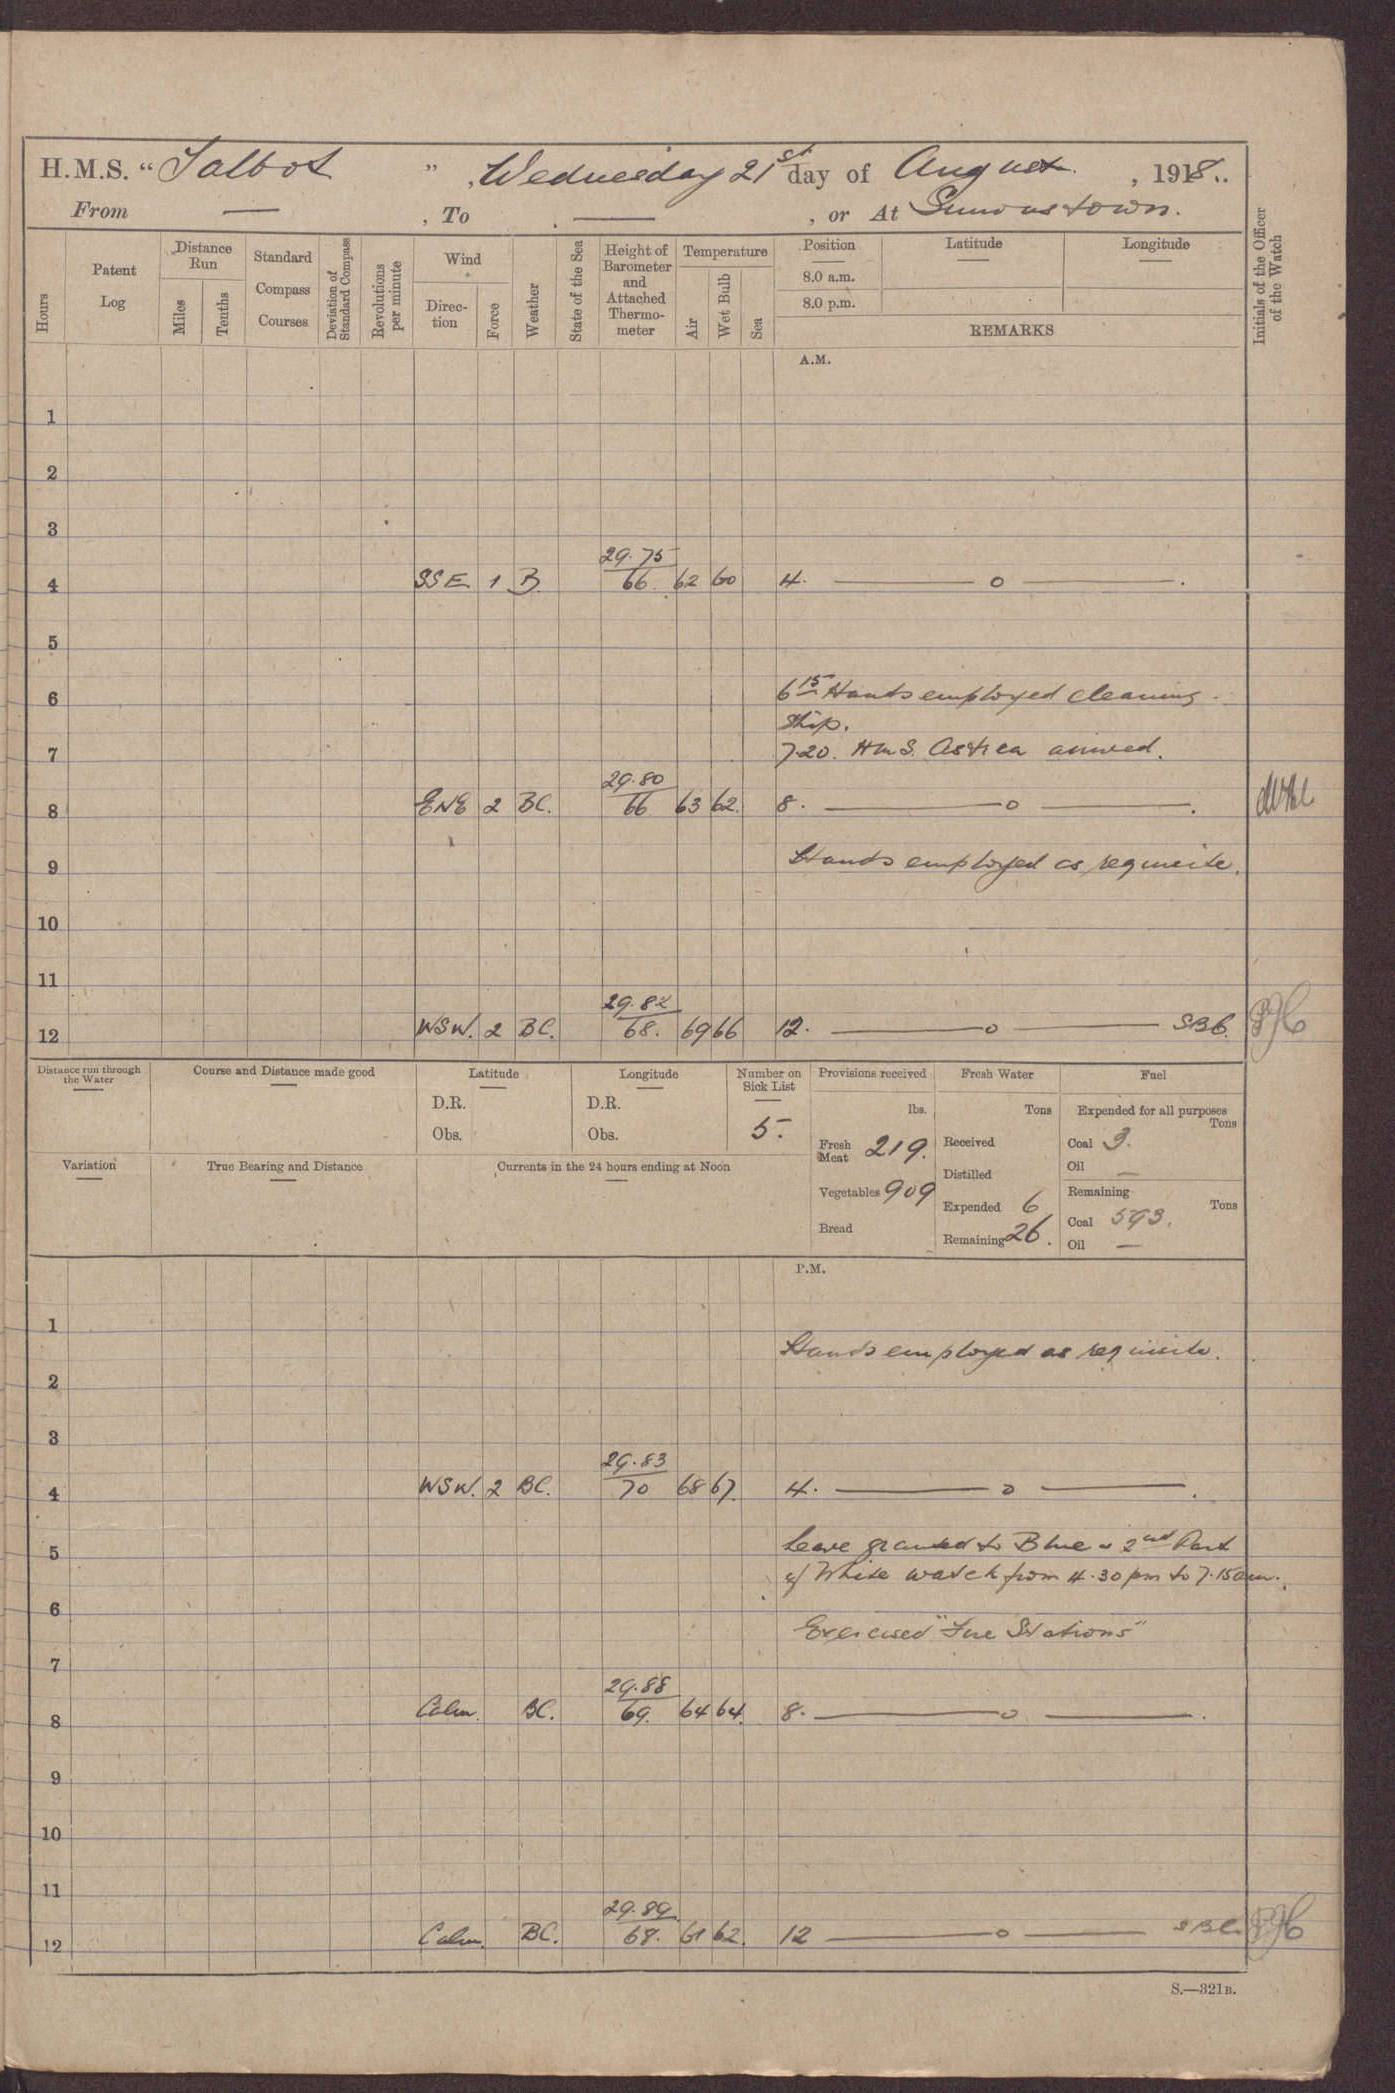 H.M.S. " Talbot ", Wednesday 21st day of August, 1918.
From — , To — , or At Simonstown.
Hours
Patent Log
Distance Run
Miles
Tenths
Standard Compass Courses
Deviation of Standard Compass
Revolutions per minute
Wind
Direc-tion
Force
Weather
State of the Sea
Height of Barometer and Attached Thermo-meter
Temperature
Air
Wet Bulb
Sea
Position
8.0 a.m.
8.0 p.m.
Latitude
Longitude
REMARKS
Initials of the Officer of the Watch
A.M.
1
2
3
29.75
4 SSE 1 B 66 62 60 4. — o — .
5
6 6 15 Hands employed cleaning
Ship.
7 7.20. HMS. Astrea arrived.
29.80
8 ENE 2 BC. 66 63 62 8. — o — .
9 Hands employed as requisite.
10
11
29.82
12 WSW. 2 BC. 68. 69 66 12. — o — SBC.
Distance run through the Water
Course and Distance made good
Latitude
D.R.
Obs.
Longitude
D.R.
Obs.
Number on Sick List
5.
Variation
True Bearing and Distance
Currents in the 24 hours ending at Noon
Provisions received
lbs.
Fresh Meat 219.
Vegetables 909
Bread
Fresh Water
Tons
Received
Distilled
Expended 6
Remaining 26.
Fuel
Expended for all purposes
Tons
Coal 3.
Oil —
Remaining
Tons
Coal 593.
Oil —
P.M.
1
Hands employed as requisite.
2
3
29.83
4 WSW. 2 BC. 70 68 67. 4. — o — .
5 Leave granted to Blue & 2nd Part
of White watch from 4.30 pm to 7.15 am.
6 Exercised "Fire Stations"
7
29.88
8 Calm. BC. 69. 64 64. 8. — o — .
9
10
11
29.89
12 Calm. BC. 68. 61 62. 12 — o — SBC.
S.—321B.